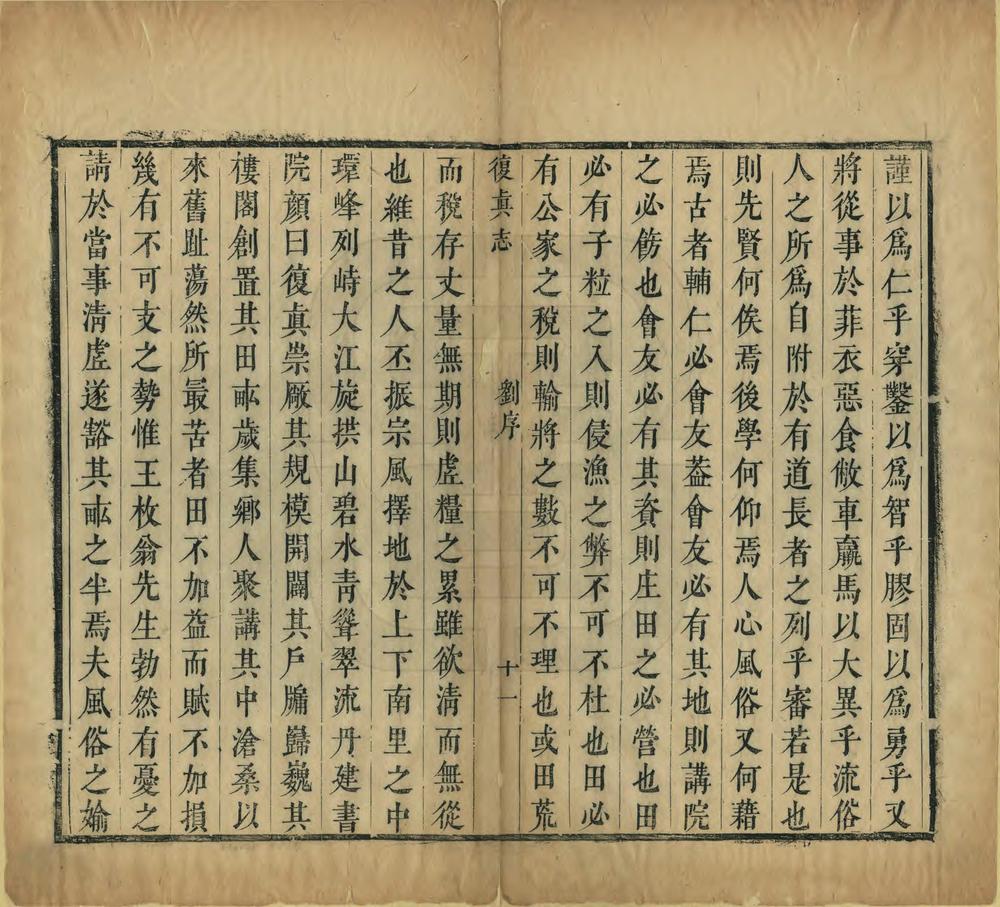 謹以爲仁乎穿鑿以爲智乎膠固以爲勇乎又
將從事於菲衣惡食敝車羸馬以大異乎流俗
人之所爲自附於有道長者之列乎審若是也
則先賢何俟焉後學何仰焉人心風俗又何藉
焉古者輔仁必會友葢會友必有其地則講院
之必飭也會友必有其資則庄田之必營也田
必有子粒之入則侵漁之弊不可不杜也田必
有公家之稅則輸將之數不可不理也或田荒
復真志 劉序 十一
而稅存丈量無期則虗糧之累雖欲清而無從
也維昔之人丕振宗風擇地於上下南里之中
環峰列峙大江旋拱山碧水青聳翠流丹建書
院顏曰復真崇厰其規模開闢其戶牖巋巍其
樓閣創置其田畝歲集鄉人聚講其中滄桑以
來舊趾蕩然所最苦者田不加益而賦不加損
幾有不可支之勢惟王枚翁先生勃然有憂之
請於當事清虗遂豁其畝之半焉夫風俗之媮